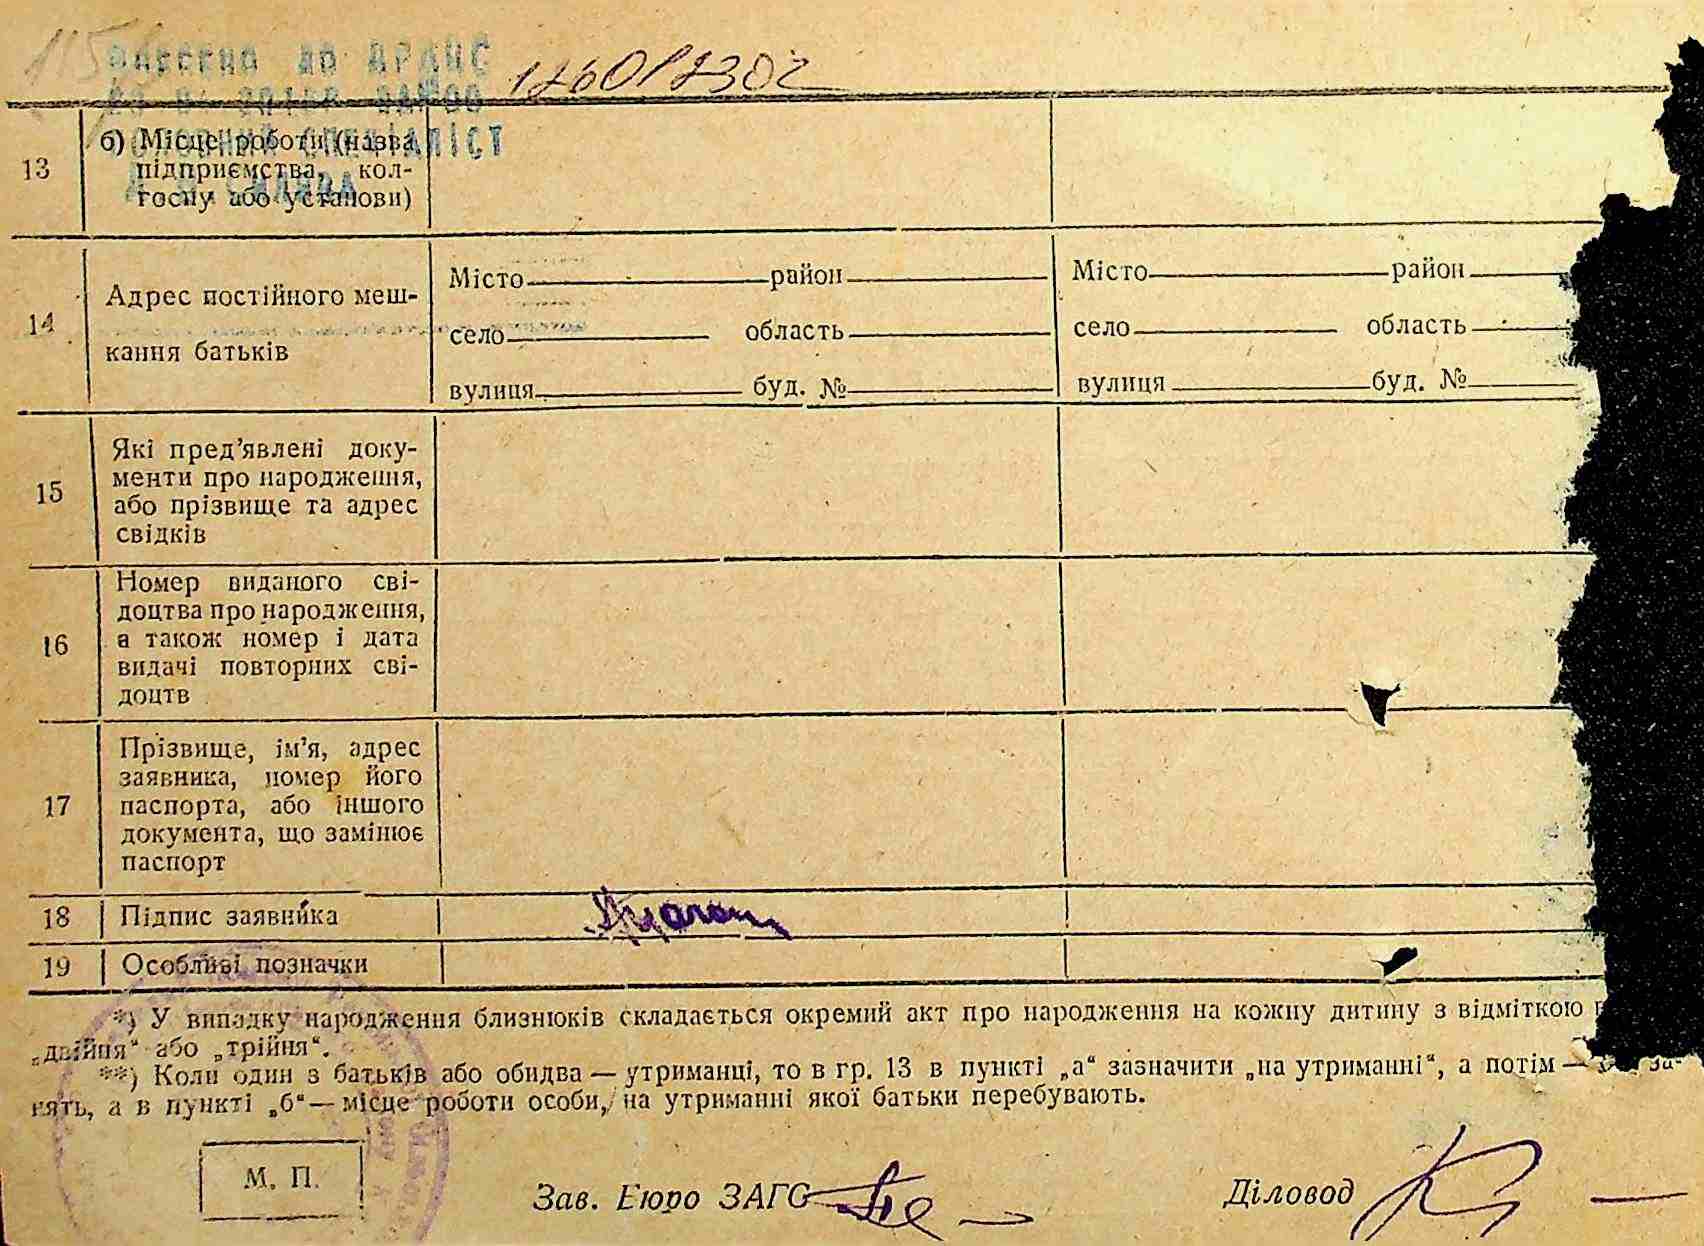 115
Внесено до ДРАЦС
головний спеціаліст
126012302
13
б) Місце роботи (назва
підприємства, кол-
госпу або установи)
14
Адрес постійного меш-
кання батьків
Місто район
село область
вулиця буд. №
Місто район
село область
вулиця буд. №
15
Які пред’явлені доку-
менти про народження,
або прізвище та адрес
свідків
16
Номер виданого сві-
доцтва про народження,
а також номер і дата
видачі повторних сві-
доцтв
17
Прізвище, ім’я, адрес
заявника, номер його
паспорта, або іншого
документа, що замінює
паспорт
18
Підпис заявника
19
Особливі позначки
*) У випадку народження близнюків складається окремий акт про народження на кожну дитину з відміткою
„двійня“ або „трійня“.
**) Коли один з батьків або обидва — утриманці, то в гр. 13 в пункті „а“ зазначити „на утриманні“, а потім — за-
нять, а в пункті „б“ — місце роботи особи, на утриманні якої батьки перебувають.
М. П.
Зав. Бюро ЗАГС
Діловод